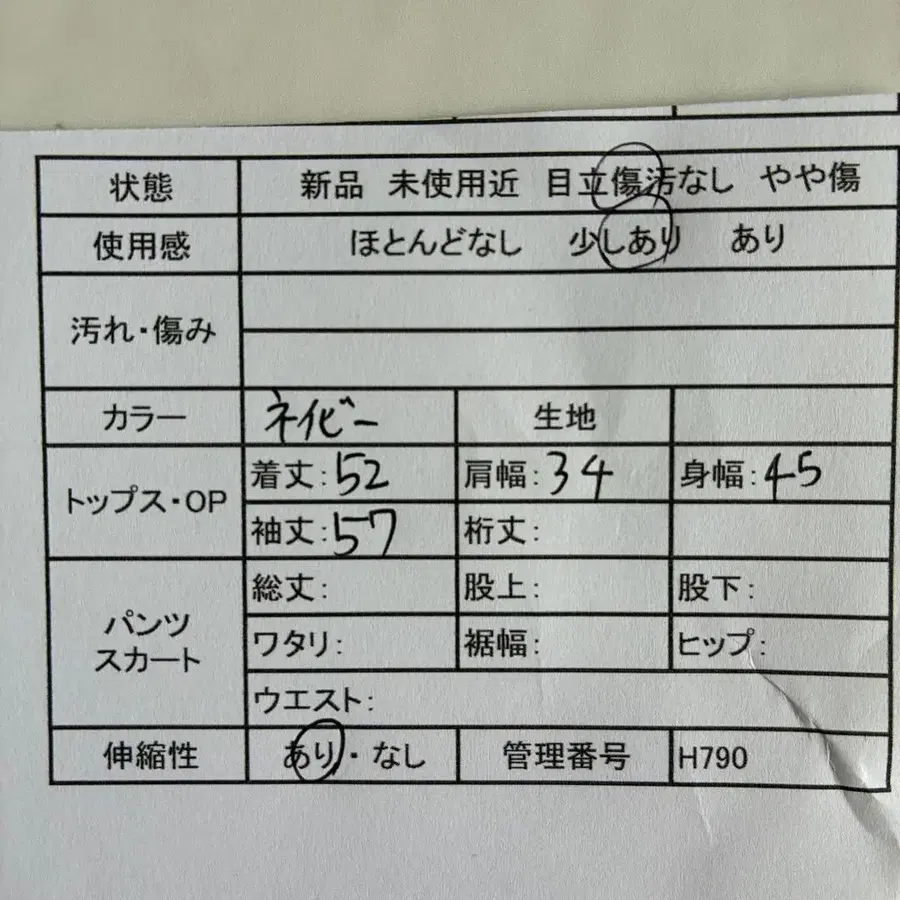 状態 新品 未使用近 目立傷汚なし やや傷
使用感 ほとんどなし 少しあり あり
汚れ・傷み
カラー ネイビー 生地
トップス・OP 着丈:52 肩幅:34 身幅:45
袖丈:57 裄丈:
パンツ
スカート
総丈: 股上: 股下:
ワタリ: 裾幅: ヒップ:
ウエスト:
伸縮性 あり・なし 管理番号 H790